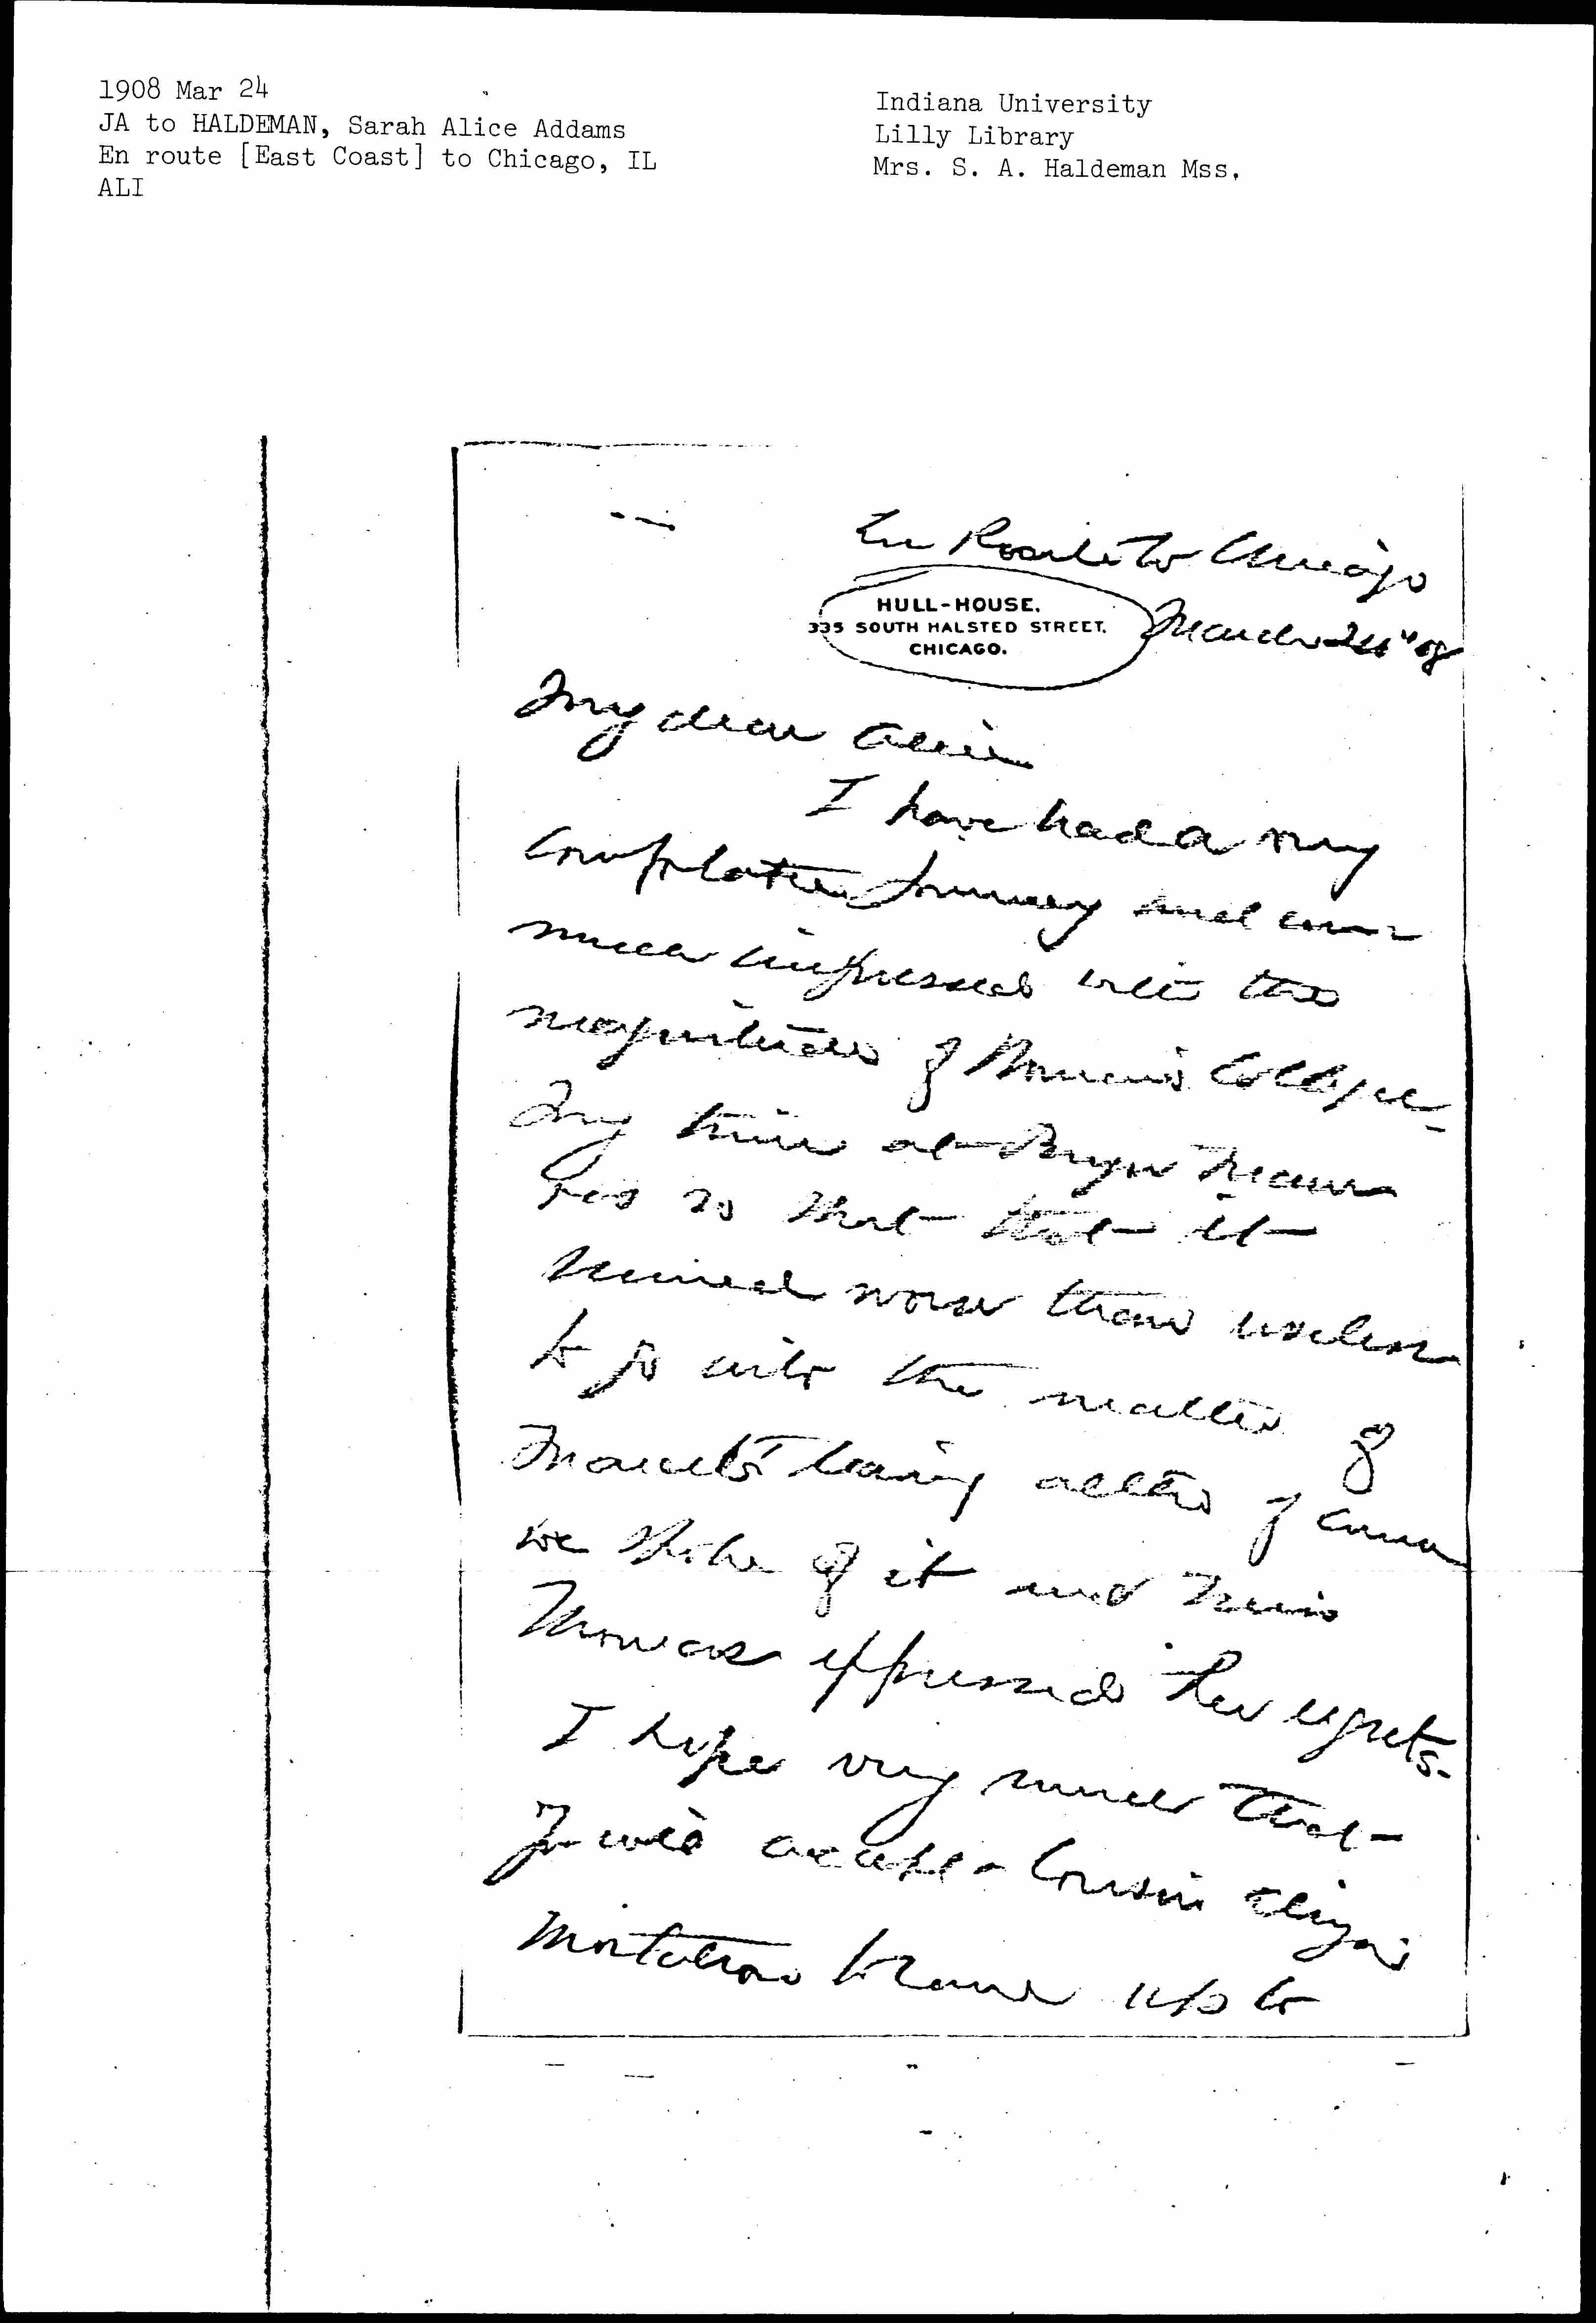 1908 Mar 24
JA to HALDEMAN, Sarah Alice Addams
En route [East Coast] to Chicago, IL
ALI
Indiana University
Lilly Library
Mrs. S. A. Haldeman Mss.
En Route to Chicago
HULL-HOUSE.
335 SOUTH HALSTED STREET.
CHICAGO.
March 24" 08
My dear Alice
I have had a very
journey and am
much impressed with the
magnitude of Women's Colleges
My time at Bryn Mawr
was so short that it
seemed worse than useless
to go into the matter of
Marcet's leaving altho of course
we spoke of it and Miss
Thomas expressed her regrets.
I hope very much that
you will accept Cousin
invitation to come up to